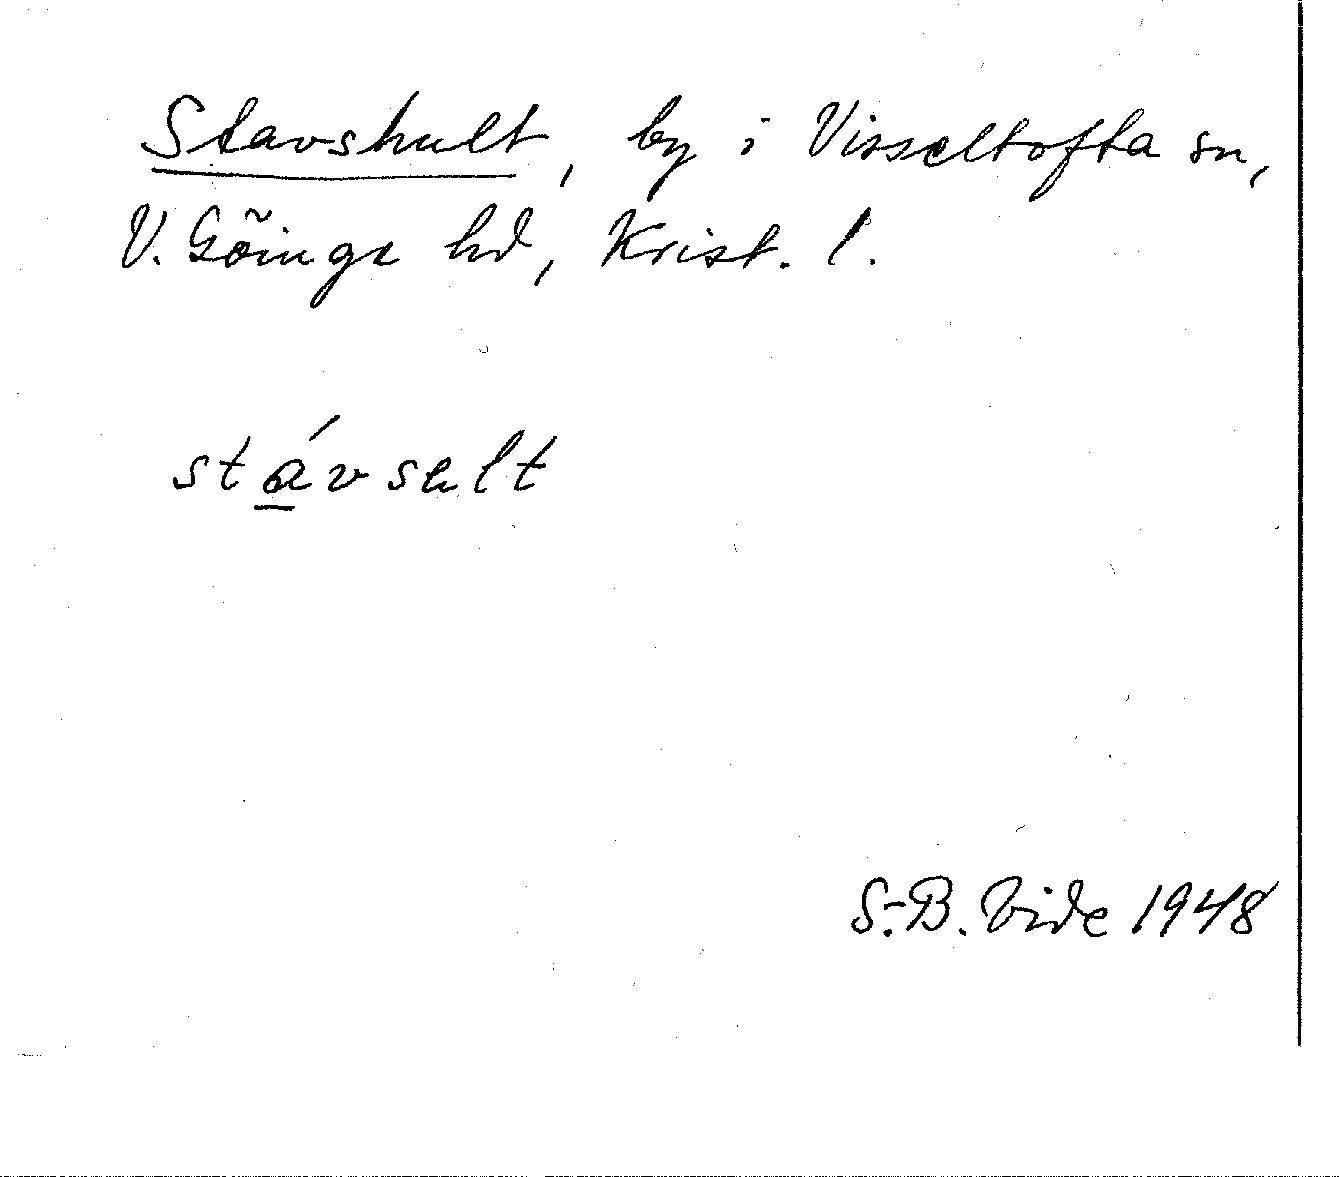 Stavshult, by i Visseltofta sn,
V. Göinge hd, Krist. l.
stá̱vselt
S.-B. Vide 1948